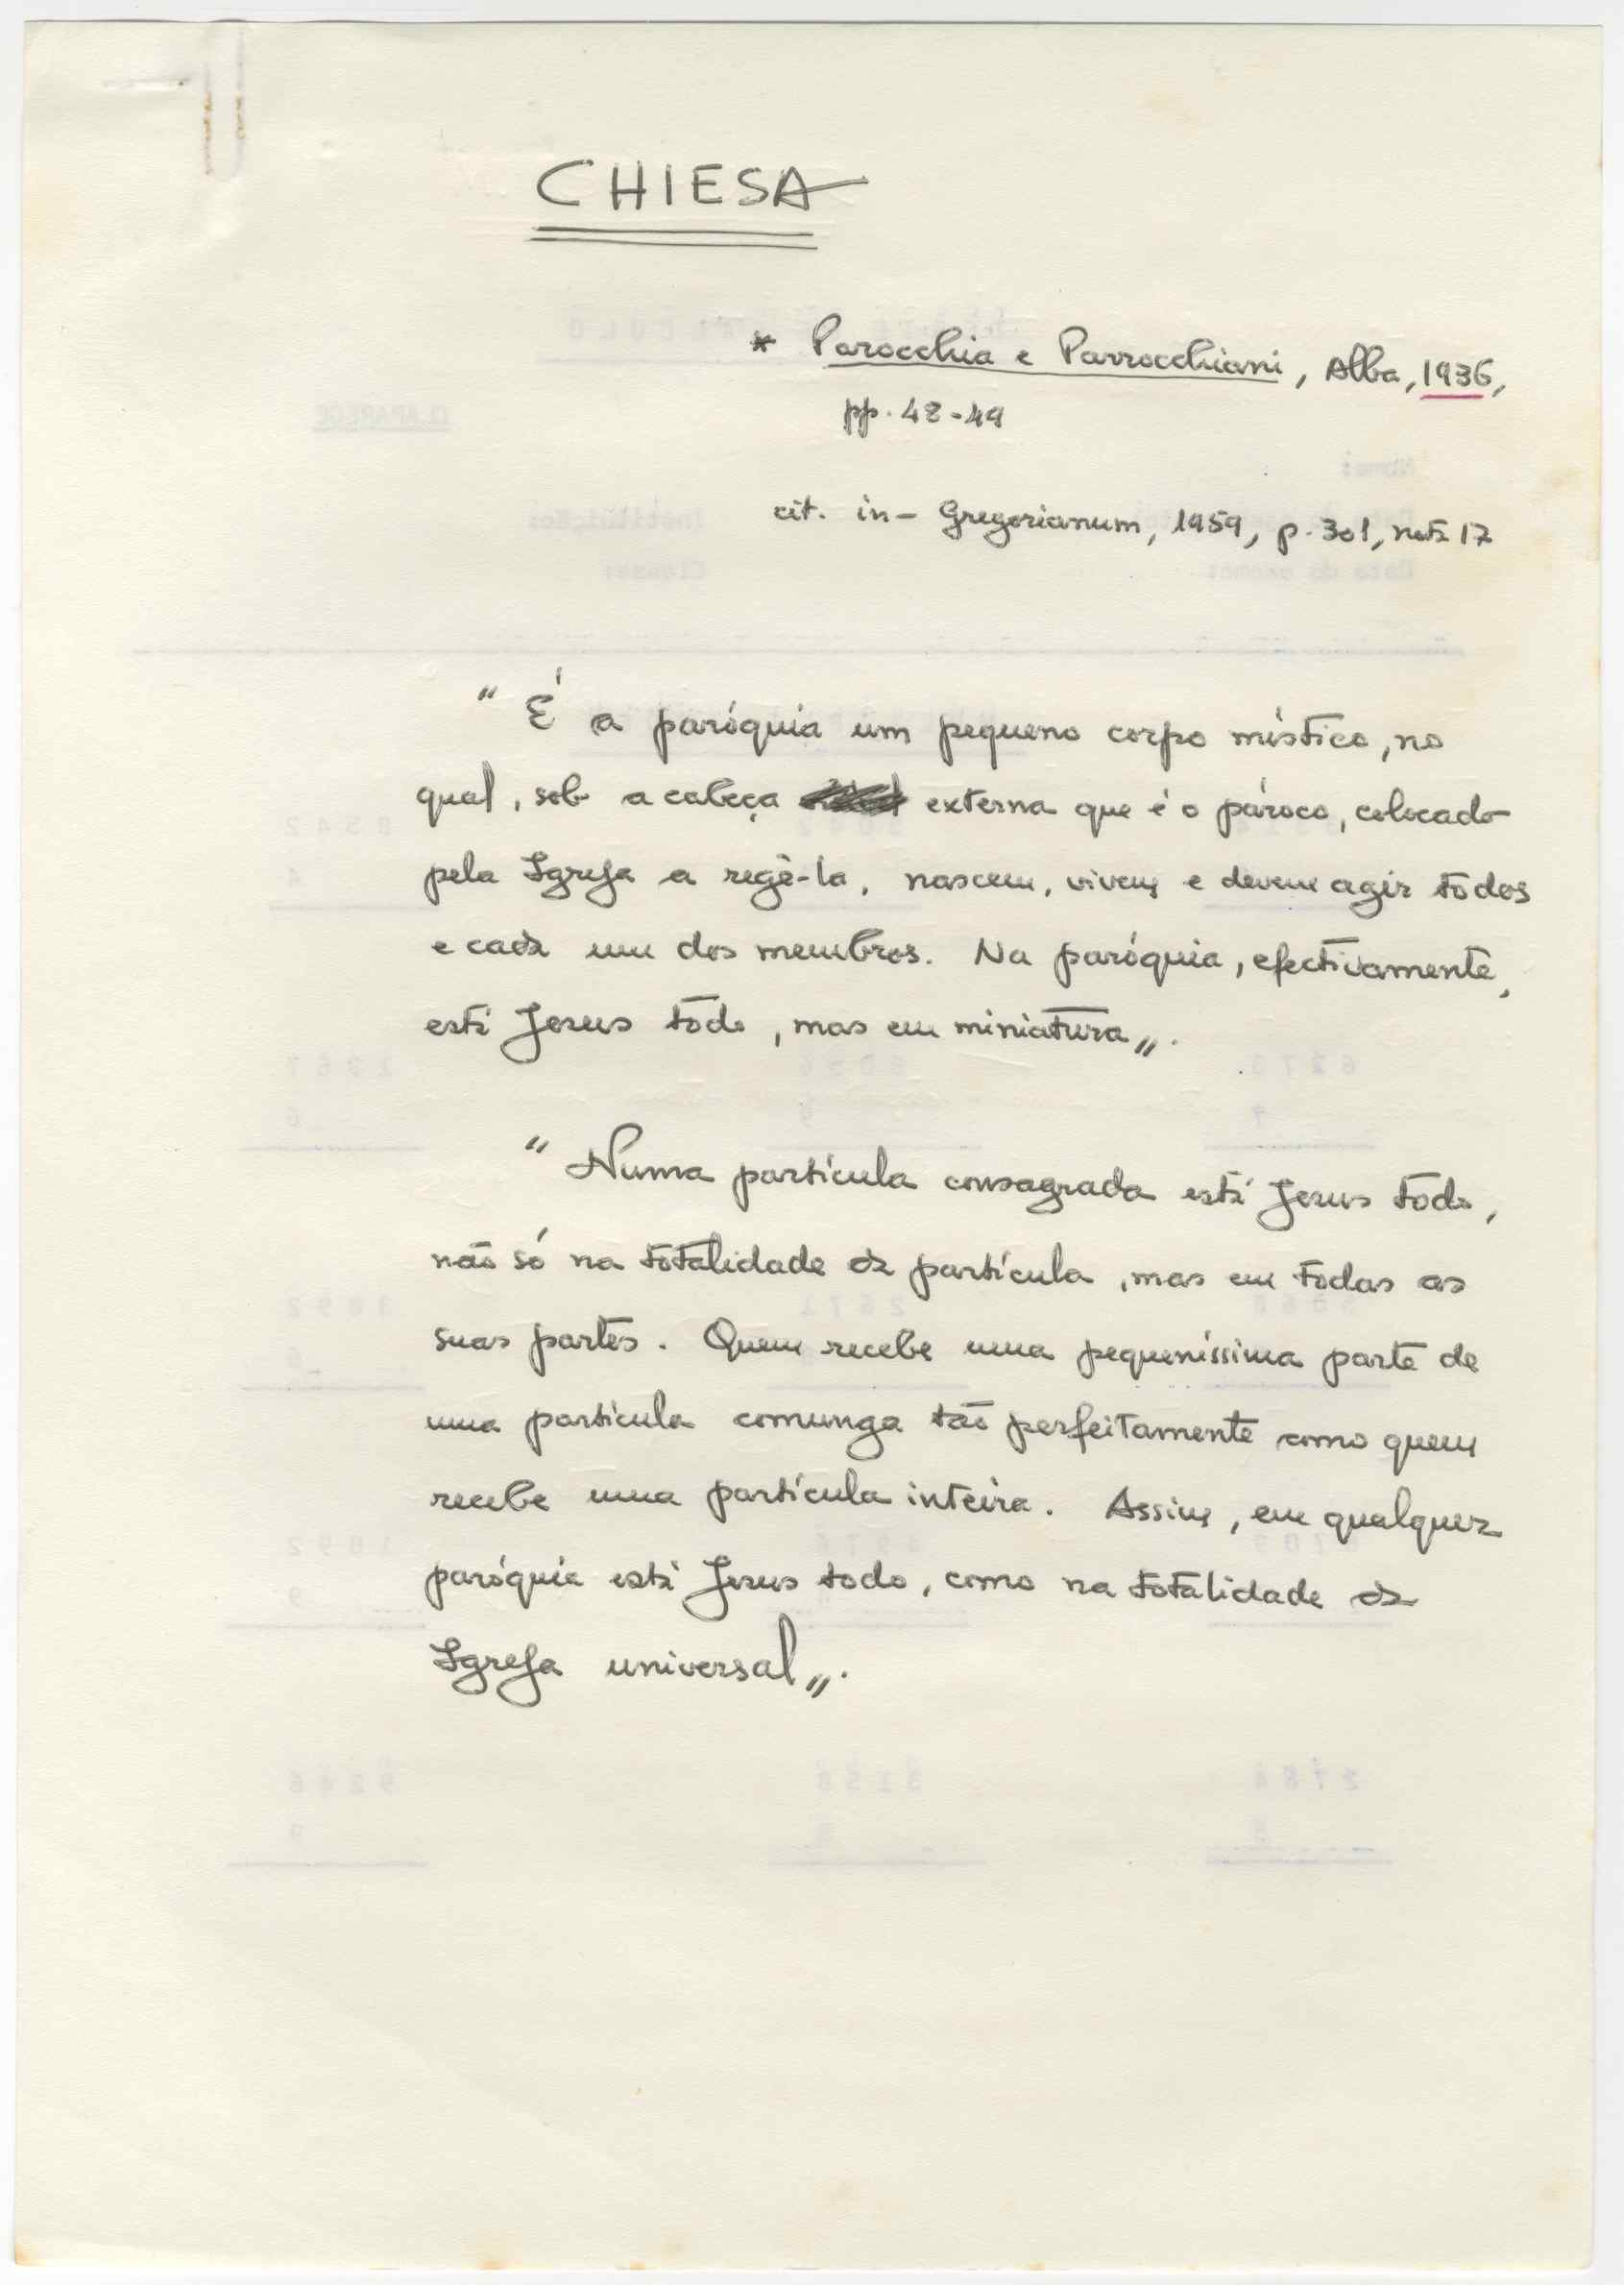 CHIESA
* Parocchia e Parrocchiani, Alba, 1936,
pp. 48-49
cit. in - Gregorianum, 1959, p. 301, nota 17
"É a paróquia um pequeno corpo místico, no
qual, sob a cabeça externa que é o pároco, colocado
pela Igreja a regê-la, nascem, vivem e devem agir todos
e cada um dos membros. Na paróquia, efectivamente,
está Jesus todo, mas em miniatura".
"Numa partícula consagrada está Jesus todo,
não só na totalidade da partícula, mas em todas as
suas partes. Quem recebe uma pequeníssima parte de
uma partícula comunga tão perfeitamente como quem
recebe uma partícula inteira. Assim, em qualquer
paróquia está Jesus todo, como na totalidade da
Igreja universal".